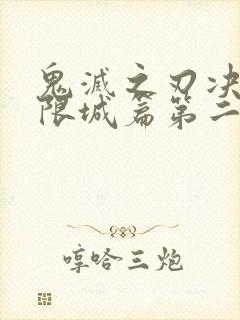 鬼滅之刃决
限城篇第二
哼哈三炮